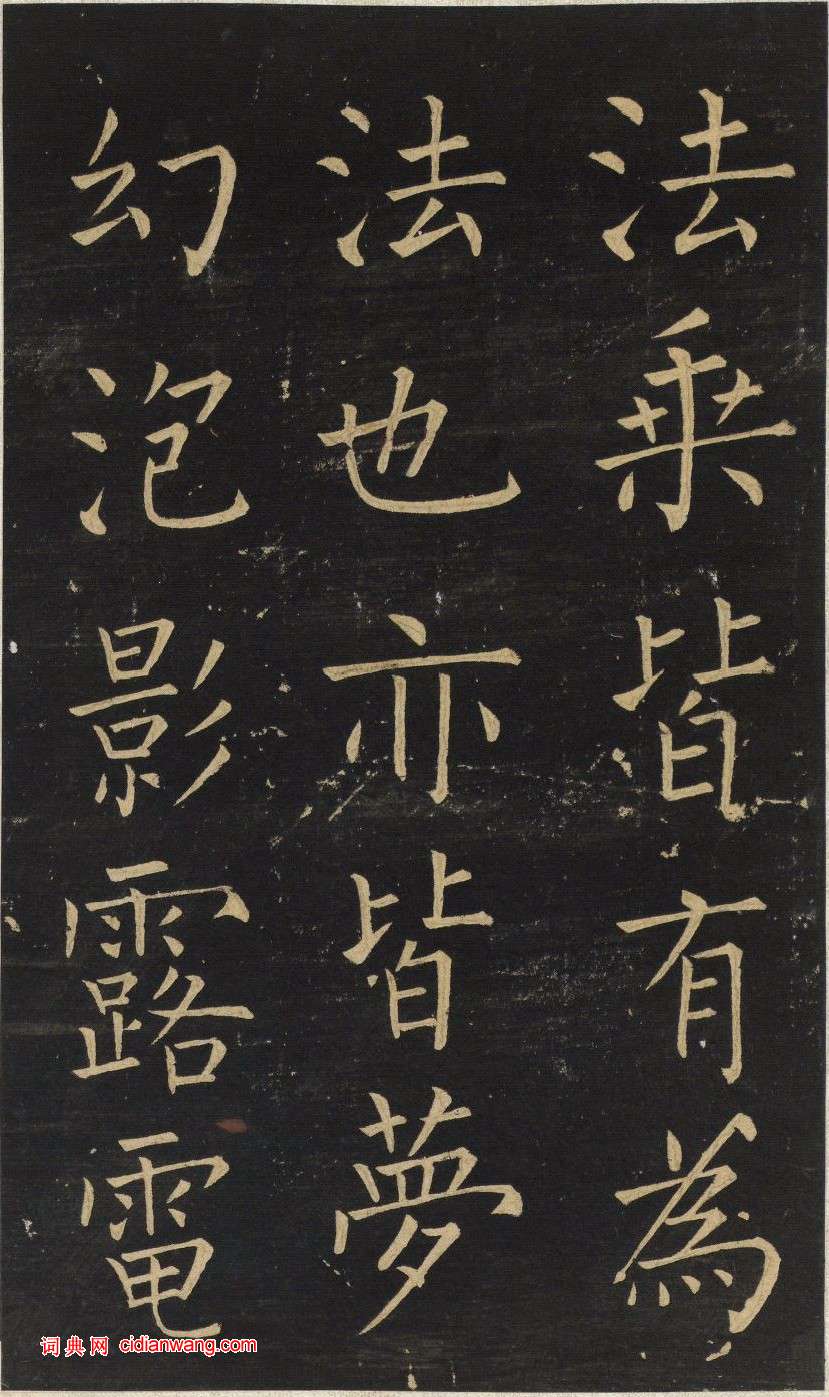 法乗皆有為
法也亦皆夢
幻泡影露電
词典网 cidianwang.com